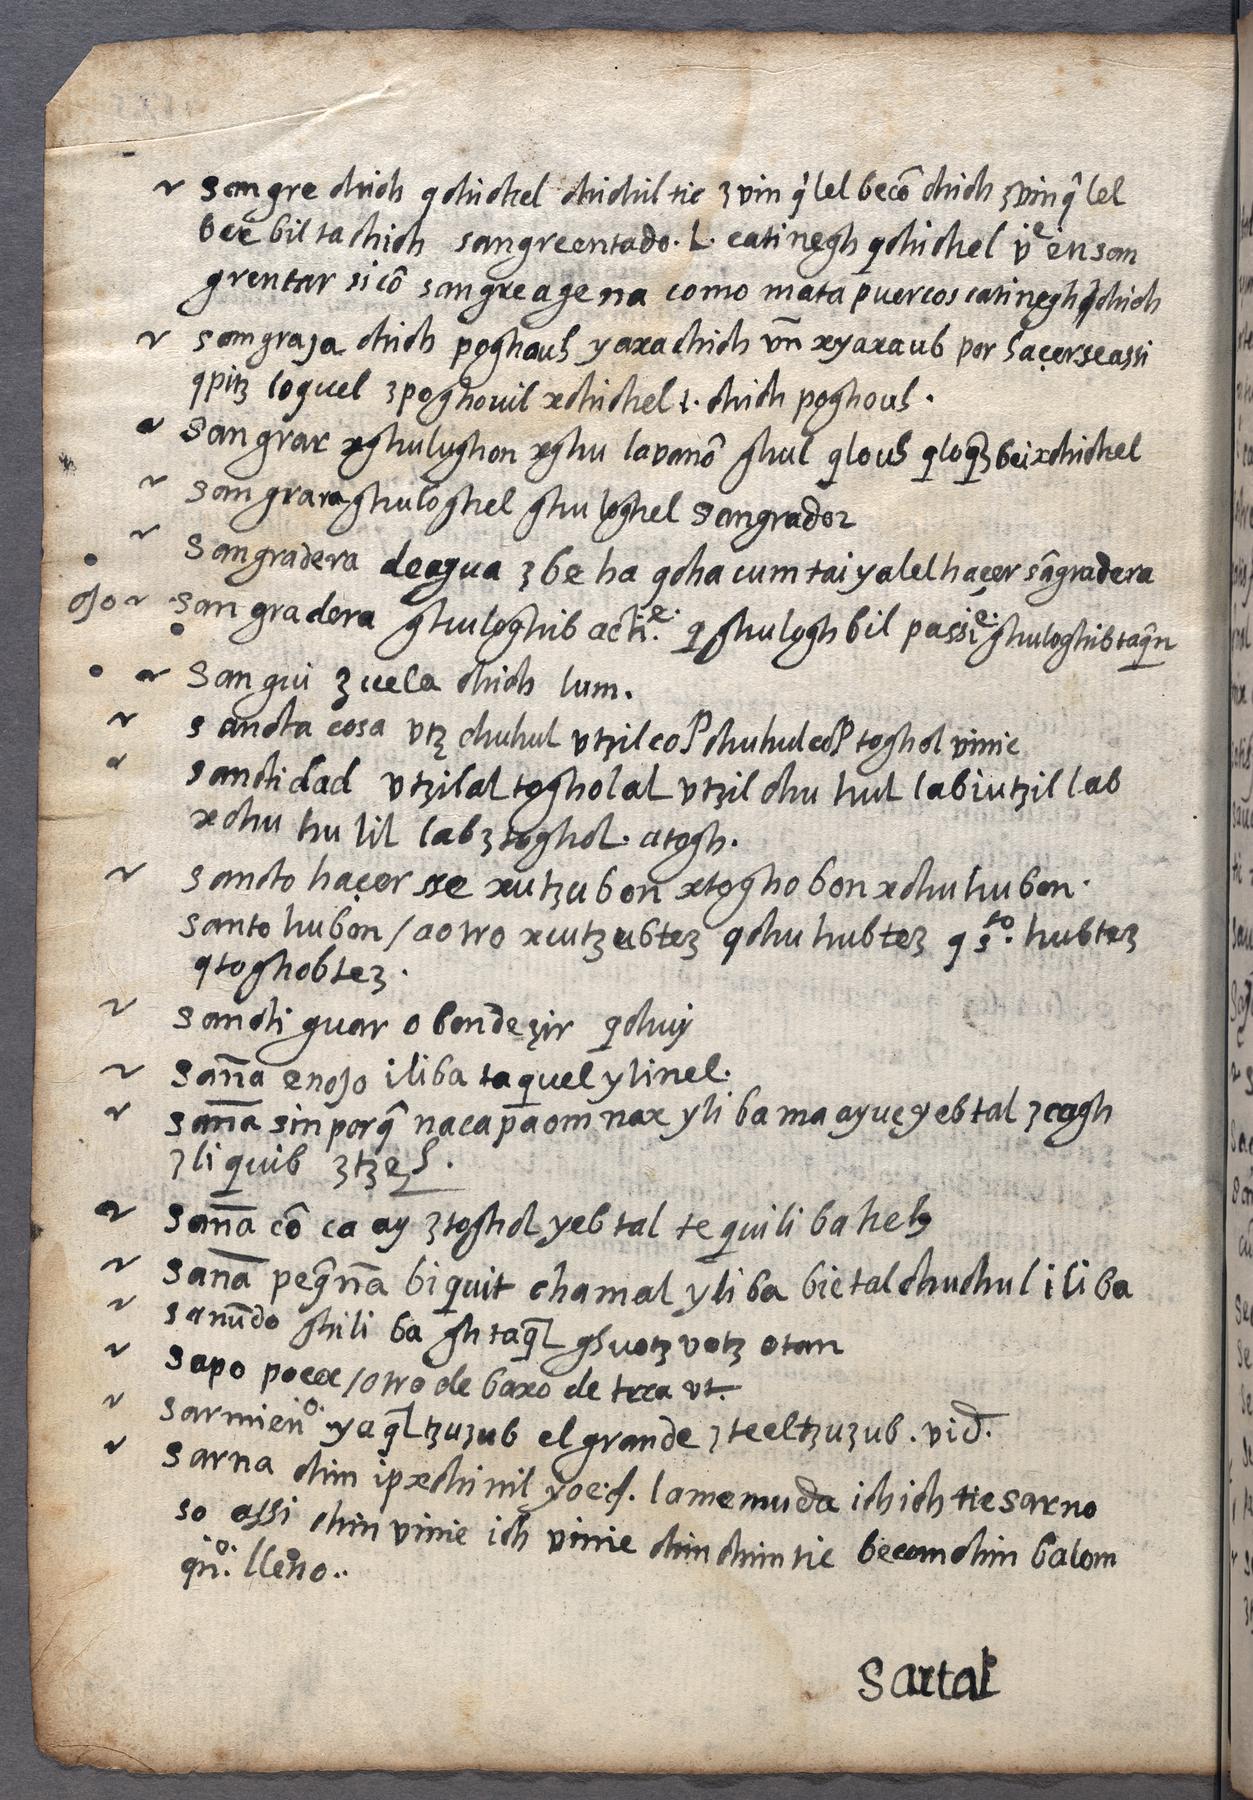 ~ sangre chich qchichel chichil tic ʒ vin q̃ lel becõ chich ʒvin q̃ lel
bec bil ta chich sangreentado. l. catinegh qchichel vᵉ ensan
grentar si cõ sangre agena como mata puercos catinegh qchich
~ sangraja chich poghaub yaxachich vñ xyaxaub por haçerse assi
qpitʒ loquel ʒpoghouil xchichel l. chich poghoub.
~ Sangrar xghulughon xghu lavanõ ghul qloub qloq̃ʒ bei xchichel
~ sangrara ghuloghel ghuloghel sangrador
~ Sangradera deagua ʒ be ha qcha cum tai yalel haçer sãgradera
ojo ~ san gradera ghuloghib actiᵉ. q ghuloghbil passiᵉ. ghuloghib taq̃n
~ San gui ʒuela chich lum.
~ sancta cosa vtʒ chuhul vtʒil cop chuhul cop toghol vinic
~ sanctidad vtʒilal togholal vtʒil chu hul labiutʒil lab
xchu hu lil lab ʒtoghol. atogh.
~ sancto haçer se xutʒubon xtoghobon xchuhubon.
santo hubon / aotro xcutʒubteʒ qchuhubteʒ q sᵗᵒ. hubteʒ
qtoghobteʒ.
~ sancti guar o bendeçir qchuy
~ sañna enojo iliba taquel ylinel.
~ saña sin porq̃ nacapaom nax yli ba ma ayuc yebtal ʒcagh
ʒli quib ʒtʒeʒ.
~ Saña cõ ca ay ʒtoghol yebtal te quili ba heb
~ Sanã peq̃ña biquit chamal yli ba bictal chuchul ili ba
~ sanudo ghili ba ghtaq̃l ghuotʒ votʒ otan
~ sapo pococ / otro de baxo de trra vt.
~ sarmienᵒ. yaq̃l tʒuʒub el grande ʒteeltʒuʒub. vid.
~ sarna chin ip xchinil yoc. s. lamemuda ich ich tic sarno
so assi chin vinic ich vinic chin chin tic becom chin balom
qñᵒ. lleno..
Sartal